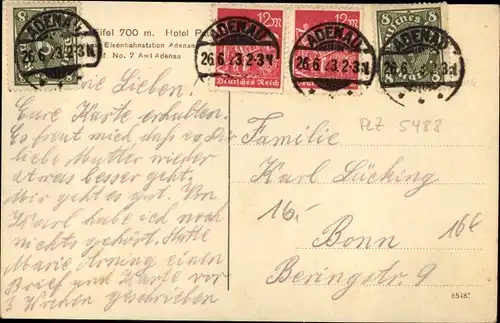 Eifel 700 m. Hotel
Eisenbahnstation Adenau
No. 7 Amt Adenau
ADENAU
26.6.23.2-3N.
12M
Deutsches Reich
ADENAU
26.6.23.2-3N.
12M
Deutsches Reich
ADENAU
26.6.23.2-3N.
8
ADENAU
26.6.23.2-3N.
Lieben!
Eure Karte erhalten.
Es freut mich daß es Dir
liebe Mutter wieder
etwas besser geht.
Mir geht es gut. Von
Karl habe ich noch
nichts gehört. Hatte
Marie Arning einen
Brief und Karte vor
3 Wochen geschrieben
PLZ 5488
Familie
Karl Lücking
16,-
16€
Bonn
Beringstr. 9